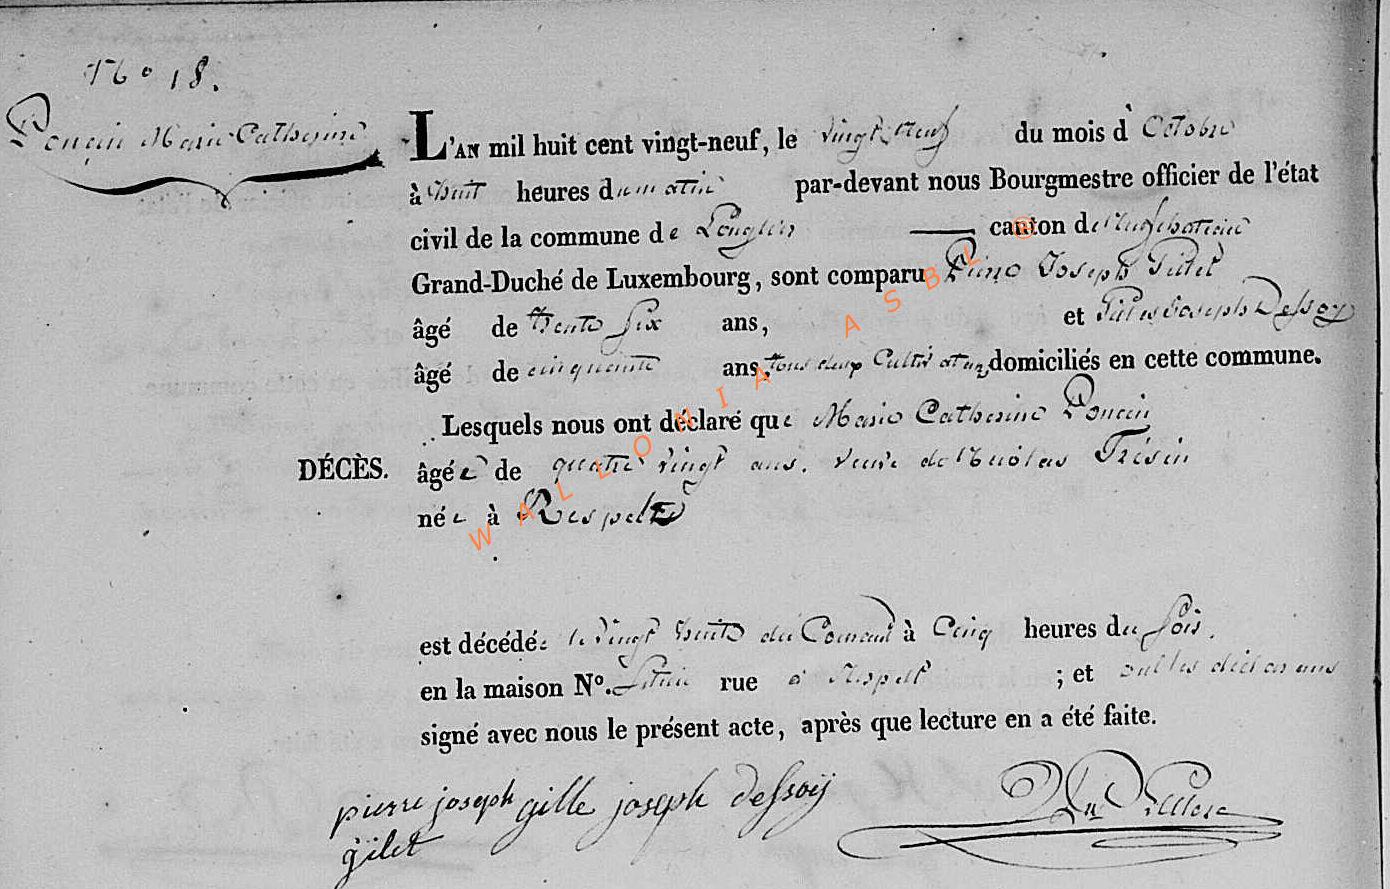 No 18.
Poncin Marie Catherine
L'AN mil huit cent vingt-neuf, le vingt neuf du mois d'Octobre
à huit heures du matin par-devant nous Bourgmestre officier de l'état
civil de la commune de Longlier canton de Neufchateau
Grand-Duché de Luxembourg, sont comparu Pierre Joseph Gillet
âgé de trente six ans, et Gilles Joseph Dessoy
âgé de cinquante ans, tous deux Cultivateurs domiciliés en cette commune.
Lesquels nous ont déclaré que Marie Catherine Poncin
DÉCÈS. âgée de quatre vingt ans. veuve de Nicolas Frisin
née à Respelt
est décédée le vingt huit du Courant à Cinq heures du soir.
en la maison No. située rue à Respelt ; et ont les déclarans
signé avec nous le présent acte, après que lecture en a été faite.
pierre joseph gille joseph dessoij
gilet
WALLONIA ASBL ®